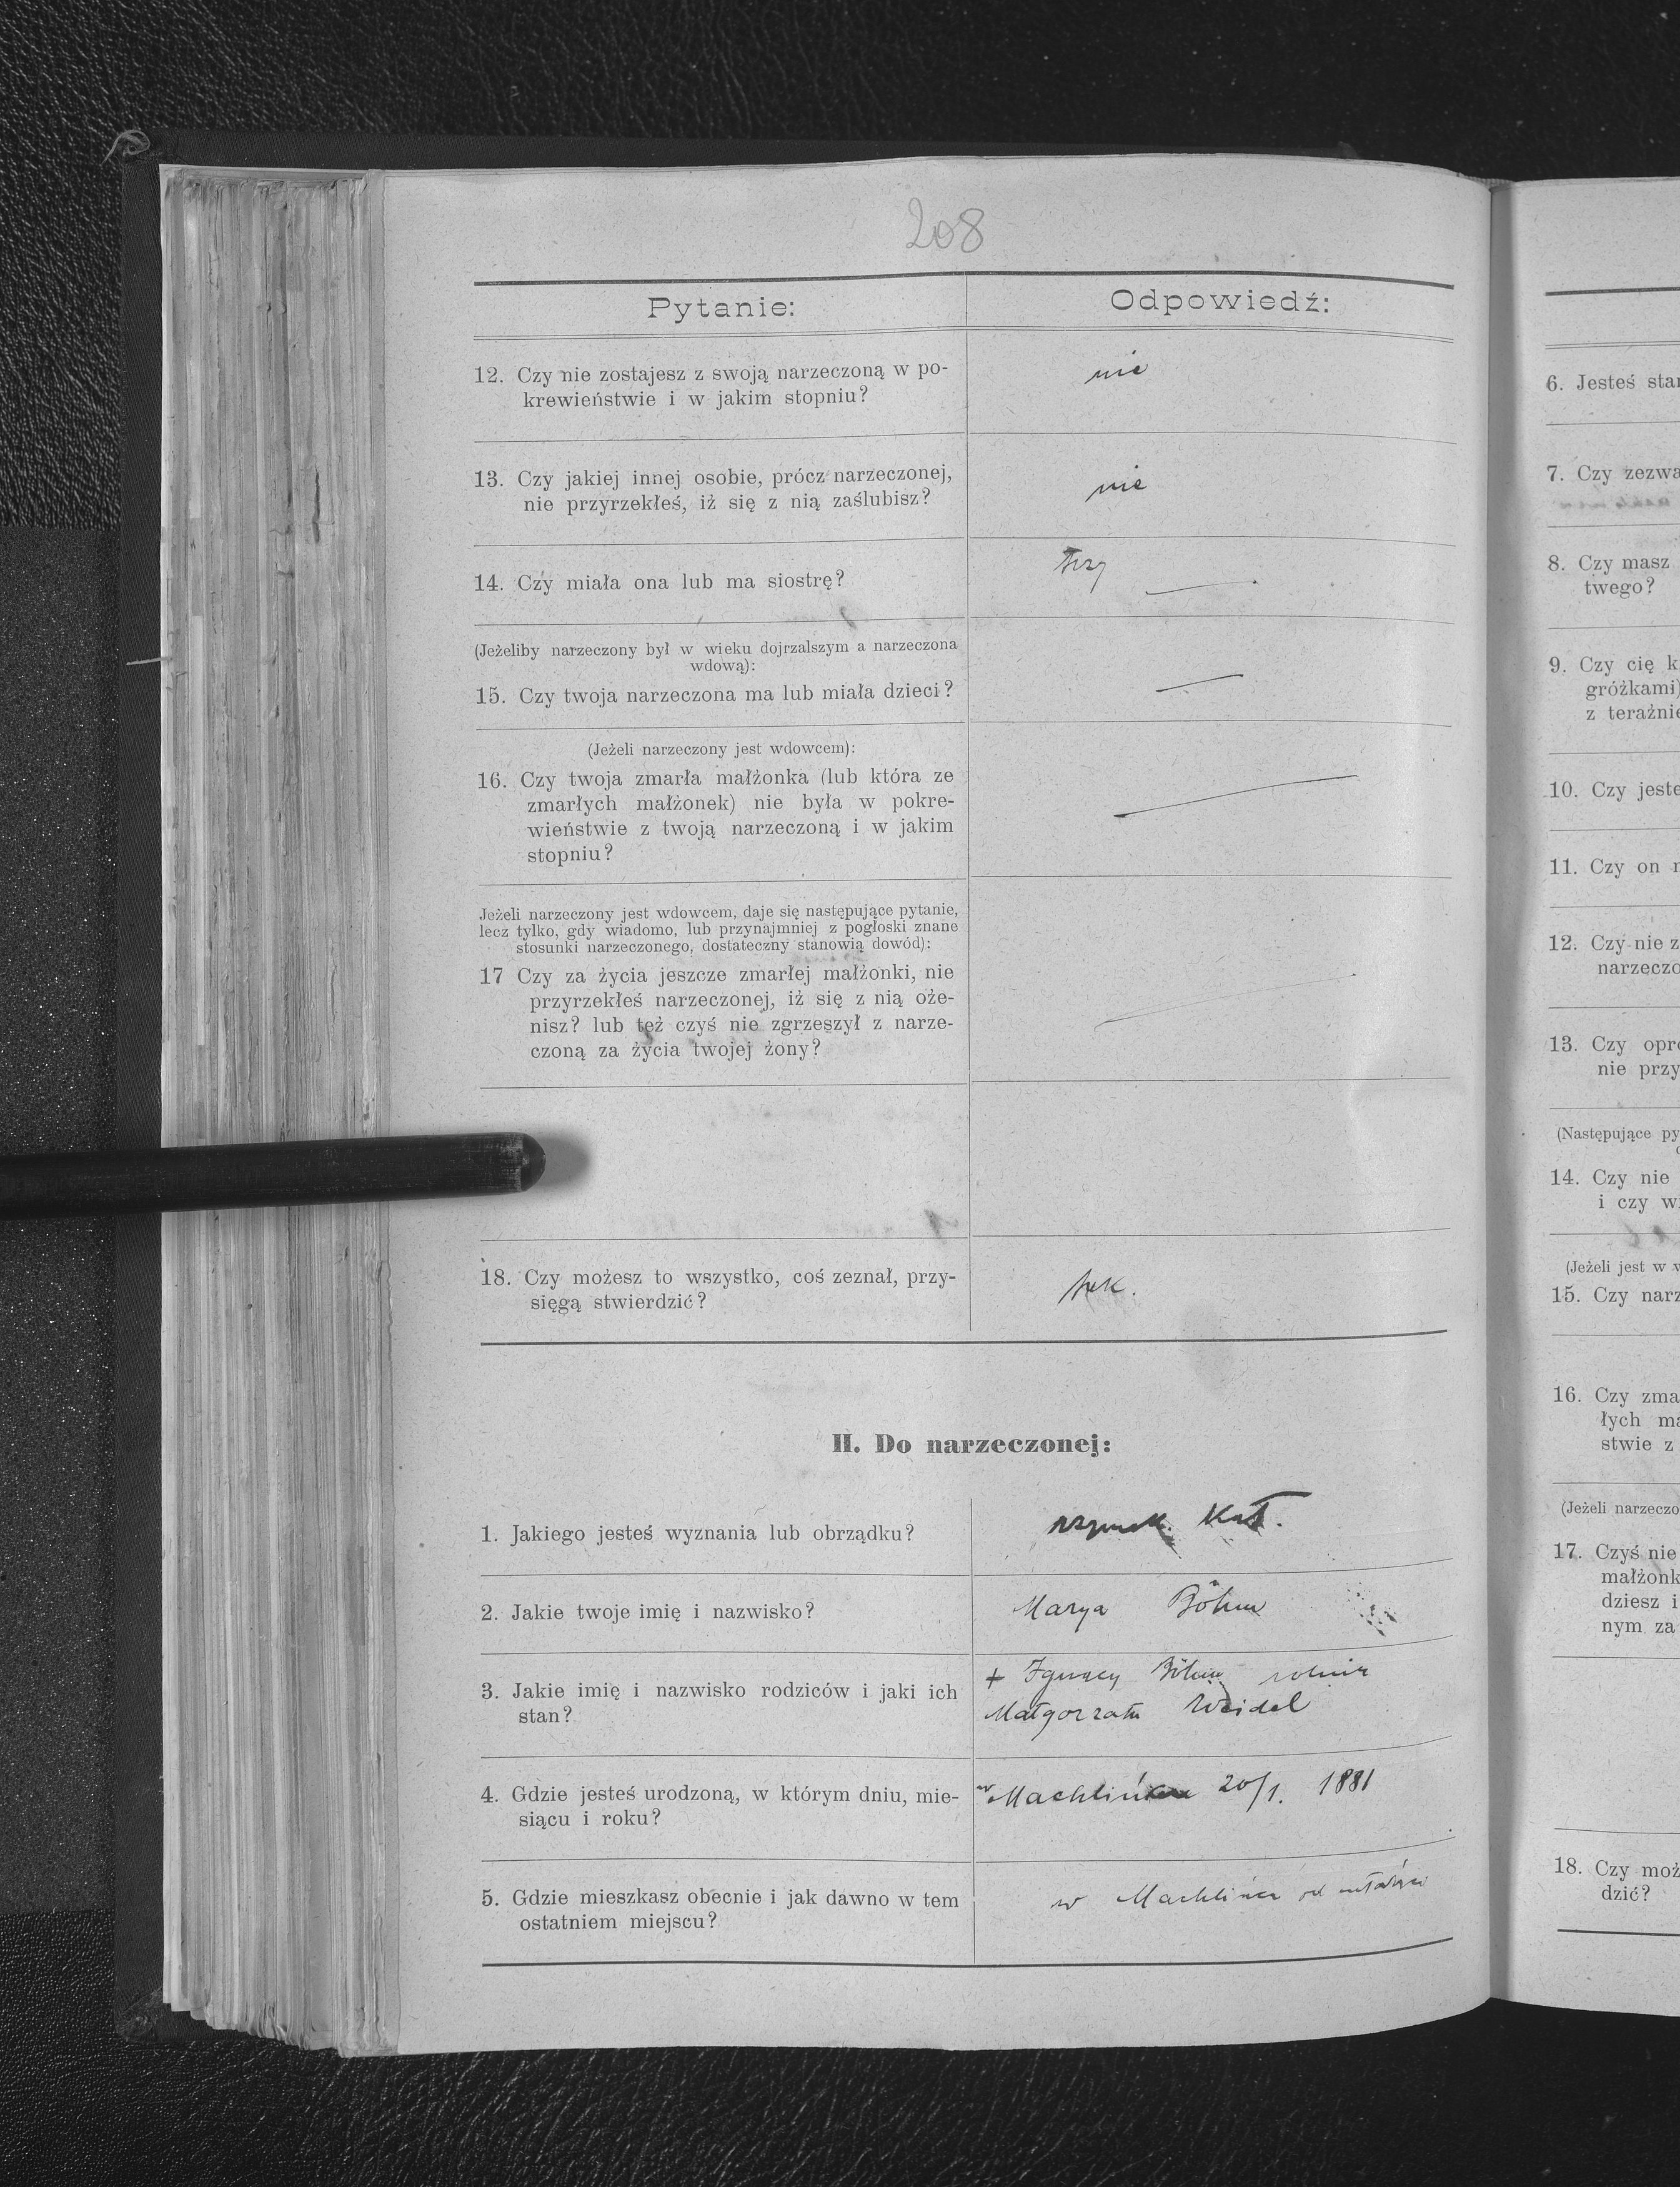 208
Pytanie:
Odpowiedź:
12. Czy nie zostajesz z swoją narzeczoną w po-
krewieństwie i w jakim stopniu?
nie
13. Czy jakiej innej osobie, prócz narzeczonej,
nie przyrzekłeś, iż się z nią zaślubisz?
nie
14. Czy miała ona lub ma siostrę?
trzy
(Jeżeliby narzeczony był w wieku dojrzalszym a narzeczona
wdową):
15. Czy twoja narzeczona ma lub miała dzieci?
(Jeżeli narzeczony jest wdowcem):
16. Czy twoja zmarła małżonka (lub która ze
zmarłych małżonek) nie była w pokre-
wieństwie z twoją narzeczoną i w jakim
stopniu?
Jeżeli narzeczony jest wdowcem, daje się następujące pytanie,
lecz tylko, gdy wiadomo, lub przynajmniej z pogłoski znane
stosunki narzeczonego, dostateczny stanowią dowód):
17 Czy za życia jeszcze zmarłej małżonki, nie
przyrzekłeś narzeczonej, iż się z nią oże-
nisz? lub też czyś nie zgrzeszył z narze-
czoną za życia twojej żony?
18. Czy możesz to wszystko, coś zeznał, przy-
sięgą stwierdzić?
tak.
II. Do narzeczonej:
1. Jakiego jesteś wyznania lub obrządku?
rzymsk. Kat.
2. Jakie twoje imię i nazwisko?
Marya Böhm
3. Jakie imię i nazwisko rodziców i jaki ich
stan?
+ Ignacy Böhm rolnik
Małgorzata Weidel
4. Gdzie jesteś urodzoną, w którym dniu, mie-
siącu i roku?
w 20/1. 1881
5. Gdzie mieszkasz obecnie i jak dawno w tem
ostatniem miejscu?
w Machlińcu od
6. Jesteś star
7. Czy zezwa
8. Czy masz
twego?
9. Czy cię k
gróżkami)
z teraźnie
10. Czy jeste
11. Czy on n
12. Czy nie z
narzeczo
13. Czy opró
nie przy
(Następujące py
14. Czy nie
i czy wi
(Jeżeli jest w w
15. Czy narz
16. Czy zma
łych ma
stwie z
(Jeżeli narzeczo
17. Czyś nie
małżonk
dziesz i
nym za
18. Czy moż
dzić?